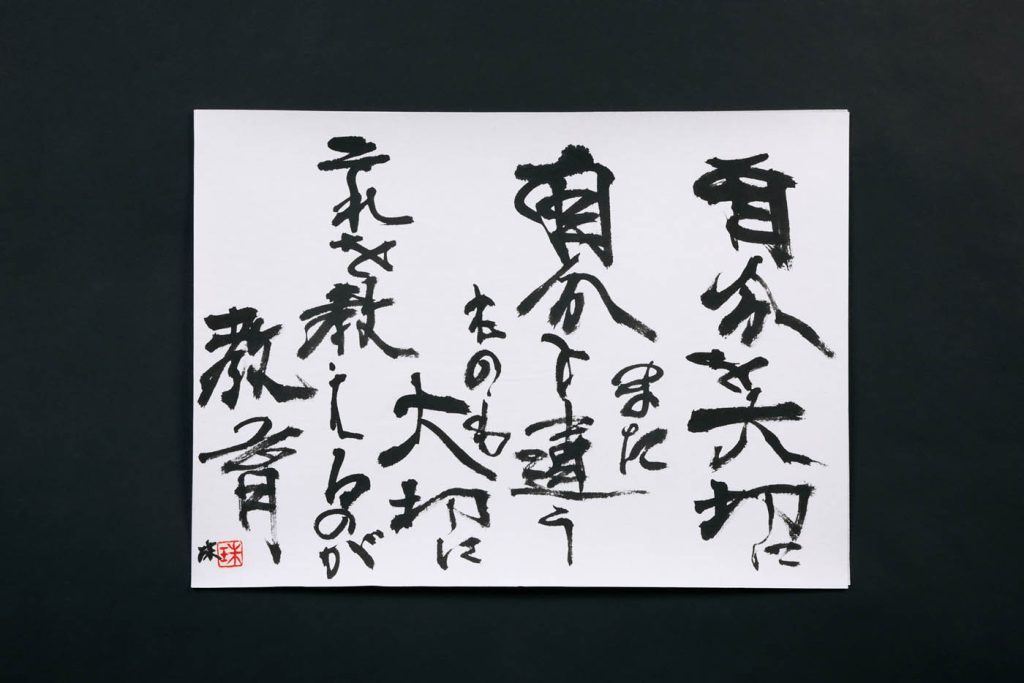 自分を大切に
また
自分と違う
ものも
大切に
これを教えるのが
教育
珠
珠